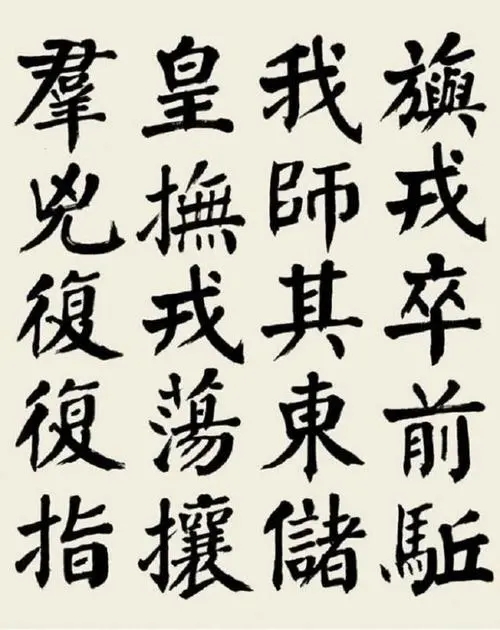 旟戎卒前駈
我師其東儲
皇撫戎蕩攘
羣兇復復指